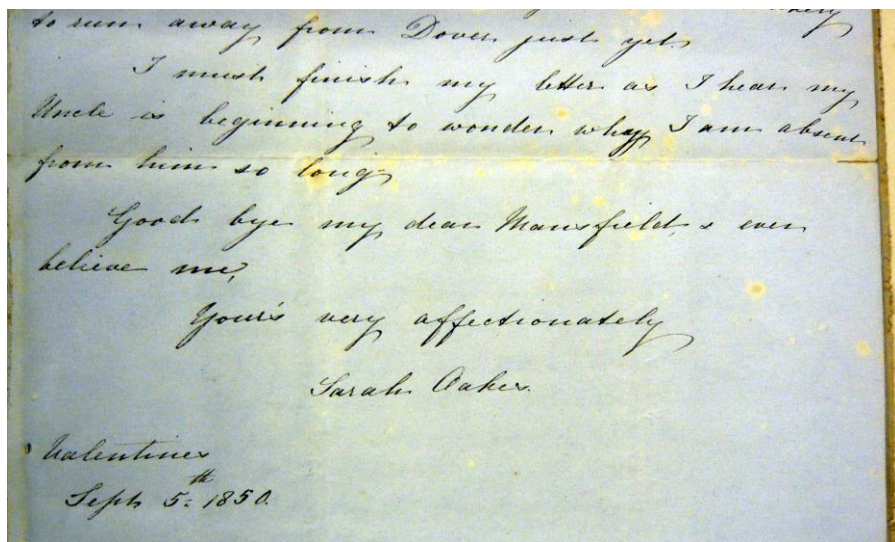 to run away from Dover just yet.
I must finish my letter as I hear my
Uncle is beginning to wonder why I am absent
from him so long.
Good bye my dear Mansfield, & ever
believe me,
Your's very affectionately
Sarah Oakes.
Valentines
Septr 5th 1850.